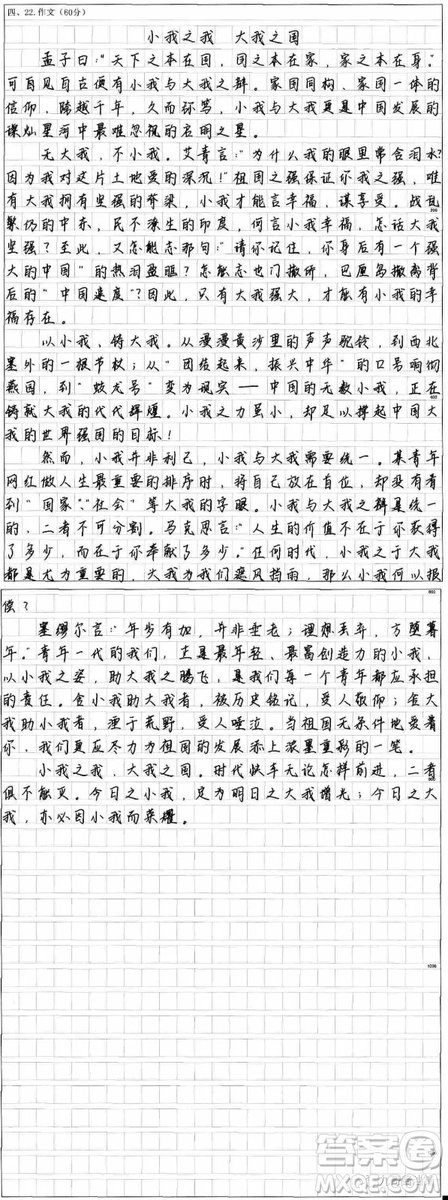 四、22.作文(60分)
小我之我 大我之国
孟子曰:“天下之本在国,国之本在家,家之本在身。”
可自见自古便有小我与大我之辩。家国同构、家国一体的
信仰,踏越千年,久而弥笃,小我与大我更是中国发展的
璨灿星河中最难忽视的启明之星。
无大我,不小我。艾青言:“为什么我的眼里常含泪水?
因为我对这片土地爱的深沉!”祖国之强保证你我之强,唯
有大我拥有坚强的脊梁,小我才能言幸福,谋享受。战乱
频仍的中东,民不聊生的印度,何言小我幸福,怎话大我
坚强?至此,又怎能忘那句:“请你记住,你身后有一个强
大的中国”的热泪盈眶?怎能忘也门撤侨,巴厘岛撤离背
后的“中国速度”?因此,只有大我强大,才能有小我的幸
福存在。
以小我,铸大我。从漫漫黄沙里的声声驼铃,到西北
塞外的一根节杖;从“团结起来,振兴中华”的口号响彻
燕园,到“蛟龙号”变为现实——中国的无数小我,正在
铸就大我的代代辉煌。小我之力虽小,却足以撑起中国大
我的世界强国的目标!
然而,小我并非利己,小我与大我需要统一。某青年
网红做人生最重要的排序时,将自己放在首位,却没有看
到“国家”、“社会”等大我的字眼。小我与大我之辩是统一
的,二者不可分割。马克思言:“人生的价值不在于你获得
了多少,而在于你奉献了多少。”任何时代,小我之于大我
都是尤为重要的,大我为我们遮风挡雨,那么小我何以报
偿?
塞缪尔言:“年岁有加,并非垂老;理想丢弃,方堕暮
年。”青年一代的我们,正是最年轻、最富创造力的小我,
以小我之姿,助大我之腾飞,是我们每一个青年都应承担
的责任。舍小我助大我者,被历史铭记,受人敬仰;舍大
我助小我者,湮于荒野,受人唾泣。当祖国无条件地爱着
你,我们更应尽力为祖国的发展添上浓墨重彩的一笔。
小我之我,大我之国。时代快车无论怎样前进,二者
俱不能灭。今日之小我,足为明日之大我增光;今日之大
我,亦必因小我而荣耀。
答案圈
MXQE.COM